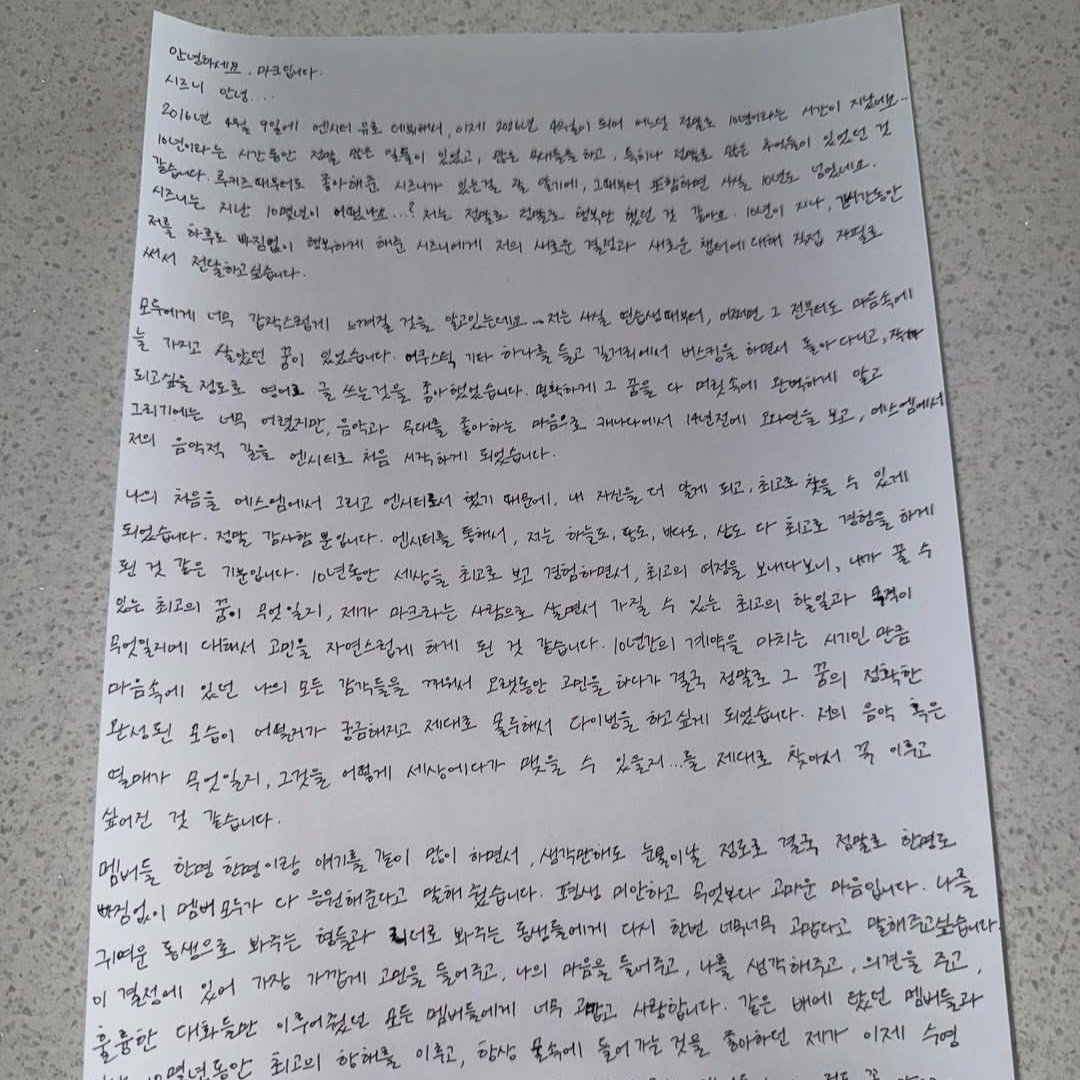 안녕하세요, 마크입니다.
시즈니 안녕....
2016년 4월 9일에 엔시티 유로 데뷔해서, 이제 2026년 4월이 되어 어느덧 정말로 10년이라는 시간이 지났네요..
10년이라는 시간동안 정말 많은 일들이 있었고, 많은 무대들을 하고, 특히나 정말로 많은 추억들이 있었던 것
같습니다. 루키즈때부터도 좋아해준 시즈니가 있는걸 잘 알기에, 그때부터 포함하면 사실 10년도 넘었네요.
시즈니는 지난 10몇년이 어땠나요...? 저는 정말로 정말로 행복만 했던 것 같아요. 10년이 지나, 긴시간동안
저를 하루도 빠짐없이 행복하게 해준 시즈니에게 저의 새로운 결정과 새로운 챕터에 대해 직접 자필로
써서 전달하고싶습니다.
모두에게 너무 갑작스럽게 느껴질 것을 알고있는데요... 저는 사실 연습생때부터, 어쩌면 그 전부터도 마음속에
늘 가지고 살았던 꿈이 있었습니다. 어쿠스틱 기타 하나를 들고 길거리에서 버스킹을 하면서 돌아다니고, 작가
되고싶을 정도로 영어로 글 쓰는것을 좋아했었습니다. 명확하게 그 꿈을 다 머릿속에 완벽하게 알고
그리기에는 너무 어렸지만, 음악과 무대를 좋아하는 마음으로 캐나다에서 14년전에 오디션을 보고, 에스엠에서
저의 음악적 길을 엔시티로 처음 시작하게 되었습니다.
나의 처음을 에스엠에서 그리고 엔시티로서 했기 때문에, 내 자신을 더 알게 되고, 최고로 찾을 수 있게
되었습니다. 정말 감사할 뿐입니다. 엔시티를 통해서, 저는 하늘도, 땅도, 바다도, 산도 다 최고로 경험을 하게
된 것 같은 기분입니다. 10년동안 세상을 최고로 보고 경험하면서, 최고의 여정을 보내다보니, 내가 꿀 수
있는 최고의 꿈이 무엇일지, 제가 마크라는 사람으로 살면서 가질 수 있는 최고의 할일과 목적이
무엇일지에 대해서 고민을 자연스럽게 하게 된 것 같습니다. 10년간의 계약을 마치는 시기인 만큼
마음속에 있던 나의 모든 감각들을 깨워서 오랫동안 고민을 하다가 결국 정말로 그 꿈의 정확한
완성된 모습이 어떨지가 궁금해지고 제대로 몰두해서 다이빙을 하고싶게 되었습니다. 저의 음악 혹은
열매가 무엇일지, 그것을 어떻게 세상에다가 맺을 수 있을지...를 제대로 찾아서 꼭 이루고
싶어진 것 같습니다.
멤버들 한명 한명이랑 얘기를 같이 많이 하면서, 생각만해도 눈물이날 정도로 결국 정말로 한명도
빠짐없이 멤버 모두가 다 응원해준다고 말해 줬습니다. 평생 미안하고 무엇보다 고마운 마음입니다. 나를
귀여운 동생으로 봐주는 형들과 리더로 봐주는 동생들에게 다시 한번 너무너무 고맙다고 말해주고싶습니다.
이 결정에 있어 가장 가깝게 고민을 들어주고, 나의 마음을 들어주고, 나를 생각해주고, 의견을 주고,
훌륭한 대화들만 이루어줬던 모든 멤버들에게 너무 고맙고 사랑합니다. 같은 배에 탔던 멤버들과
10몇년동안 최고의 항해를 이루고, 항상 물속에 들어가는것을 좋아하던 제가 이제 수영